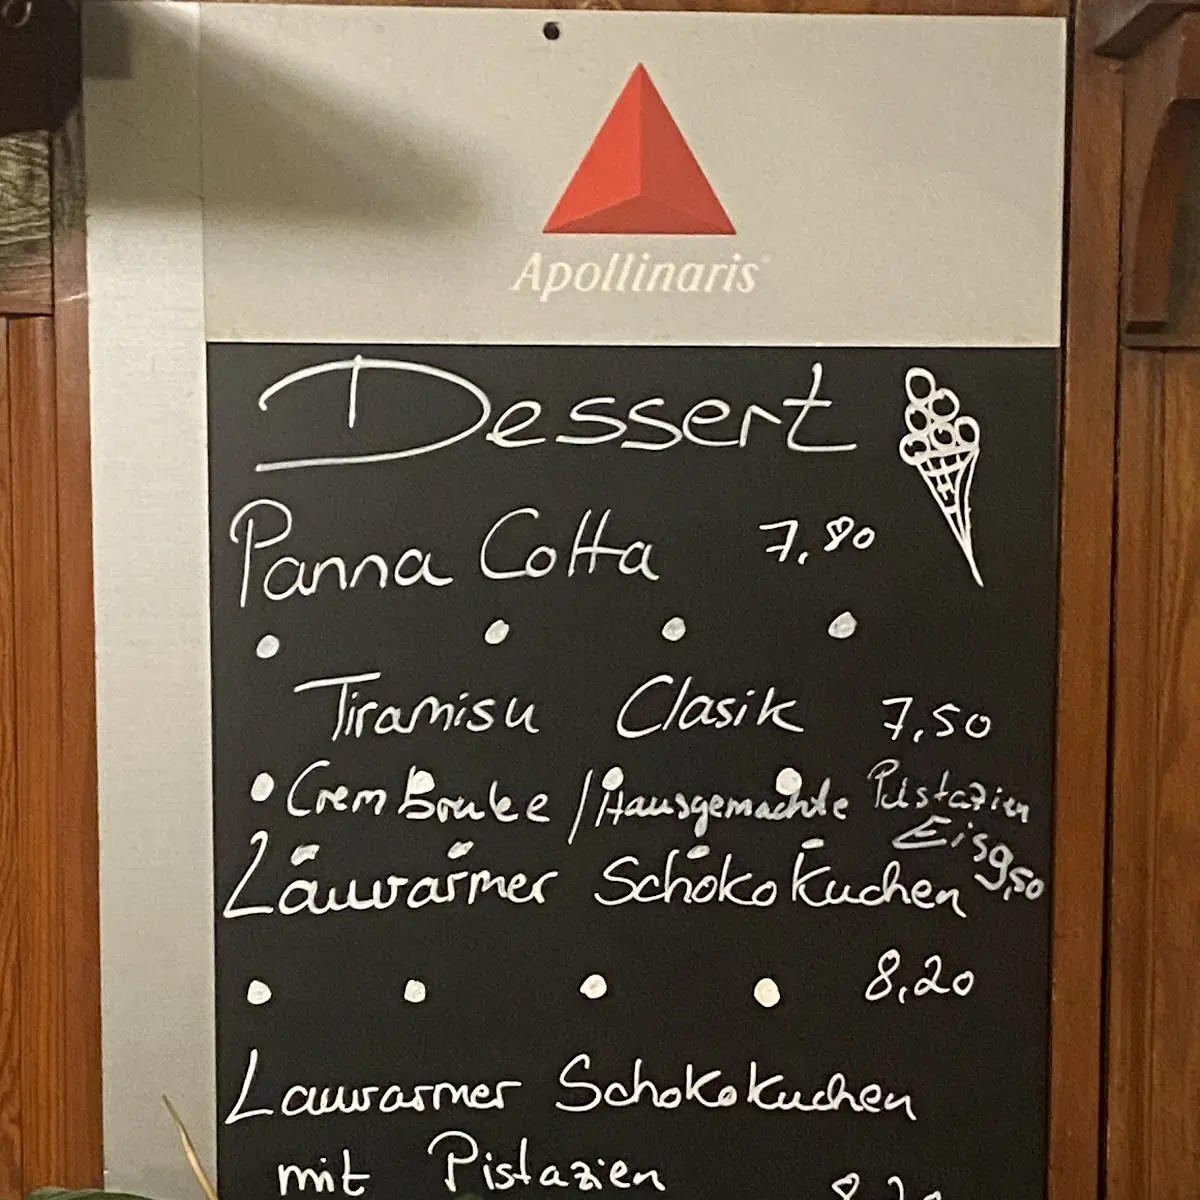 Apollinaris
Dessert
Panna Cotta 7,80
Tiramisu Clasik 7,50
Crem Brulee / Hausgemachte Pistazien
Eis 9,50
Lauwarmer Schoko kuchen
8,20
Lauwarmer Schokokuchen
mit Pistazien